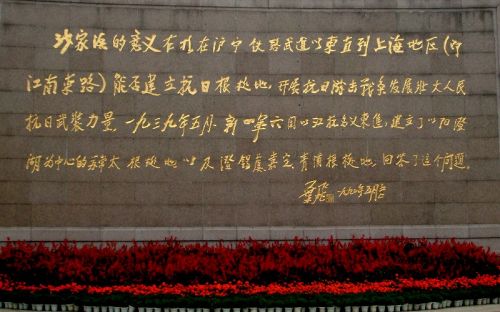 沙家浜的意义在於在沪宁铁路武进以東直到上海地区(即
江南東路)能否建立抗日根据地,开展抗日游击战争发展壮大人民
抗日武装力量。一九三九年五月,新四军六团以江抗名义東進,建立了以阳澄
湖为中心的苏常太根据地以及澄锡虞嘉定、青浦根据地,回答了这个问题。
叶飞 一九九〇年五月